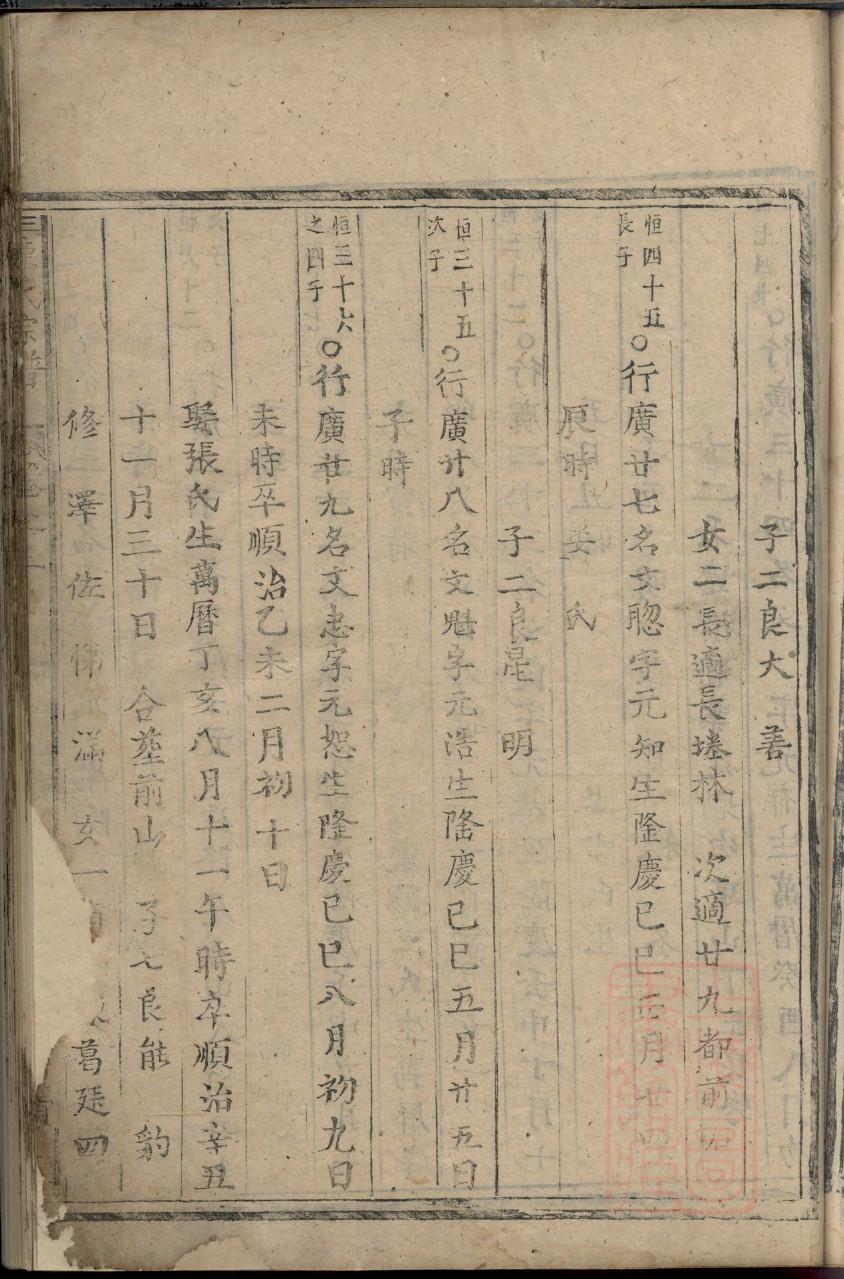 子二良大 善
女二長適長塘林 次適廿九都前
恒四十五長子○行廣廿七名文聰字元知生隆慶己巳正月廿四
辰時娶 氏
子二良昆 明
恒三十五次子○行廣廿八名文魁字元浩生隆慶己巳五月廿五日
子時
恒三十六之四子○行廣廿九名文忠字元恕生隆慶己巳八月初九日
未時卒順治乙未二月初十日
娶張氏生萬曆丁亥八月十一午時卒順治辛丑
十一月三十日 合塟前山 子七良能 豹
修 澤 佐 悌 滿 女一 葛廷四
氏宗譜